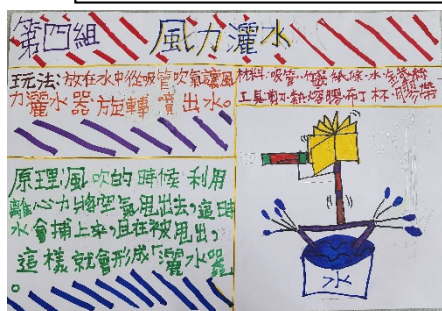 第四組 風力灑水
玩法:放在水中從吸管吹氣讓風
力灑水器旋轉噴出水。
材料:吸管、竹籤、紙條、水、
工具:剪刀、熱熔膠、布丁杯、膠帶
原理:風吹的時候利用
離心力將空氣甩出去,這時
水會捕上來,且在被甩出,
這樣就會形成「灑水器
。
水